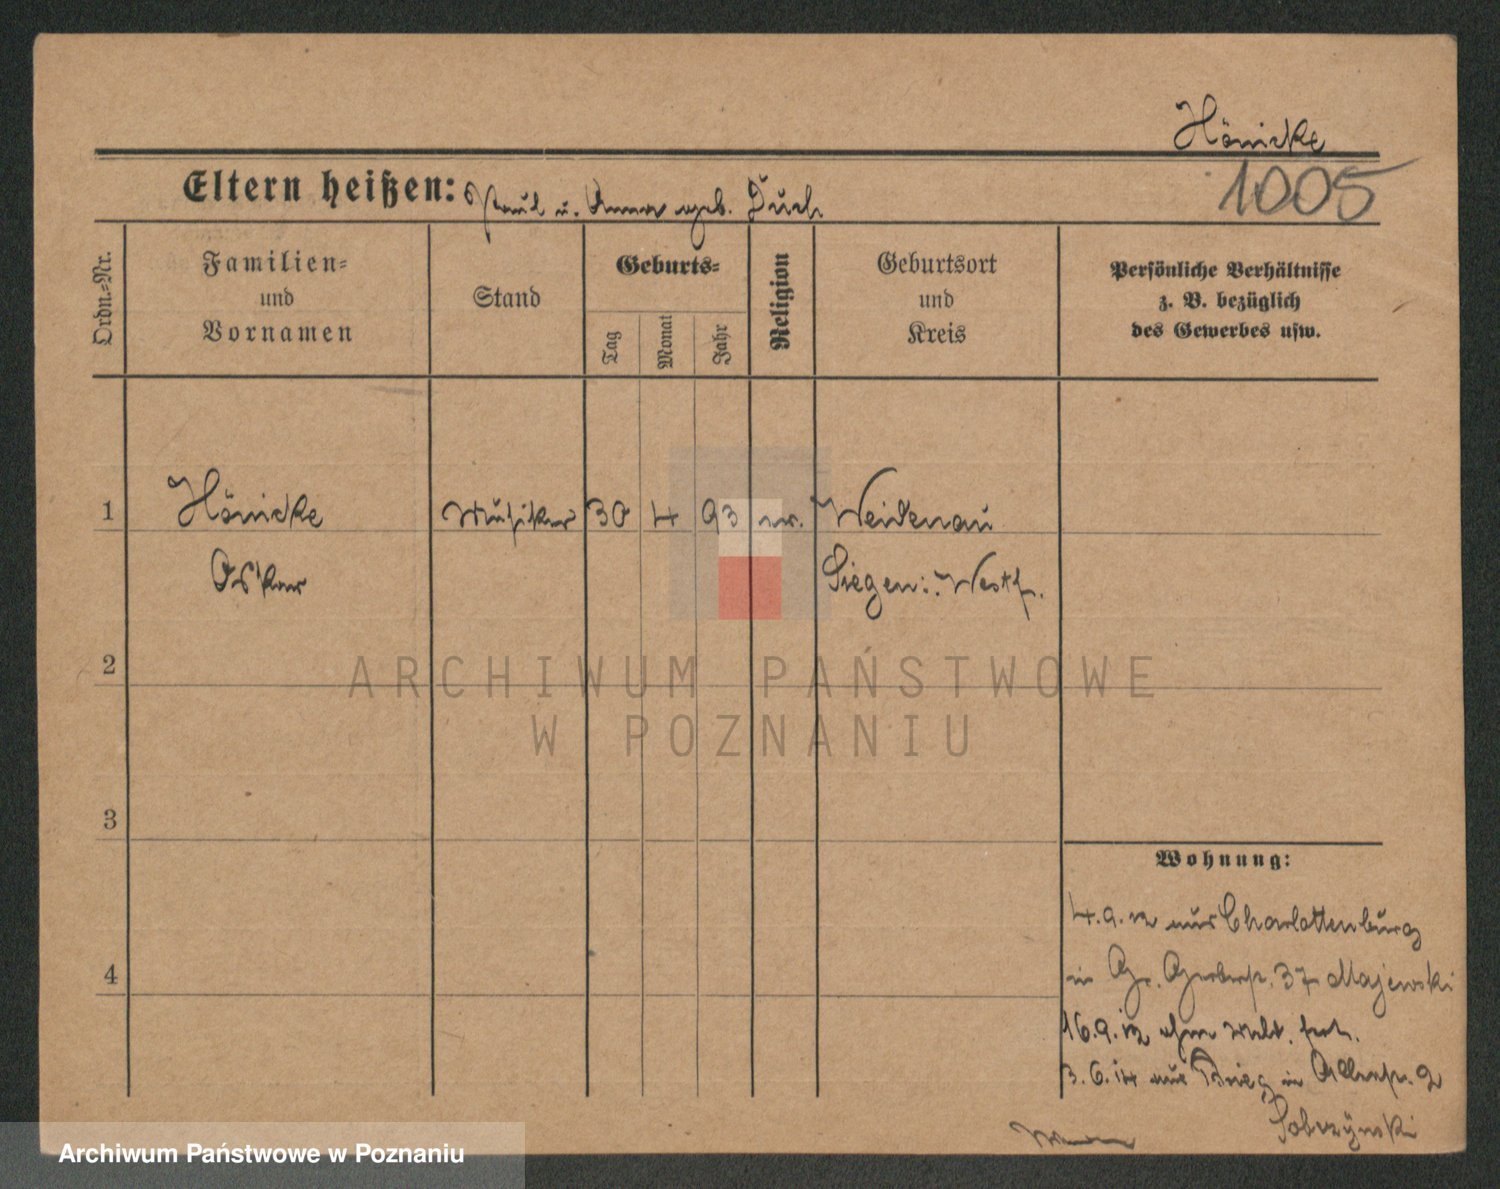 Hönicke
1005
Eltern heißen: Paul u. Anna geb. Duch
Ordn.-Nr.
Familien- und Vornamen
Stand
Geburts-
Tag
Monat
Jahr
Religion
Geburtsort und Kreis
Persönliche Verhältnisse
z. B. bezüglich
des Gewerbes usw.
1 Hönicke Musiker 30 4 93 ev. Weidenau
Oskar Siegen: Westf.
2
3
4
Wohnung:
4.9.12 aus Charlottenburg
in Gr. Gerberst. 37 Majewski
16.9.12 ohne
3.6.14 aus Brieg in 2
Sobczyński
ARCHIWUM PAŃSTWOWE
W POZNANIU
Archiwum Państwowe w Poznaniu